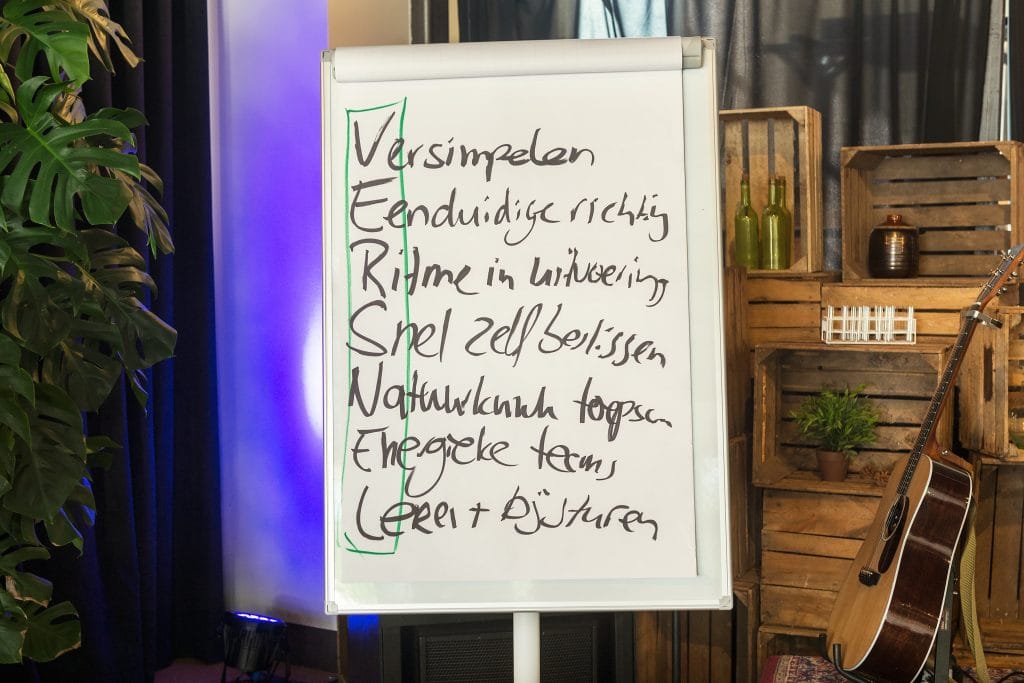 Versimpelen
Eenduidige richtig
Ritme in uitvoering
Snel zelf beslissen
Natuurkunde toepsen
Energieke teams
Leren + bijsturen